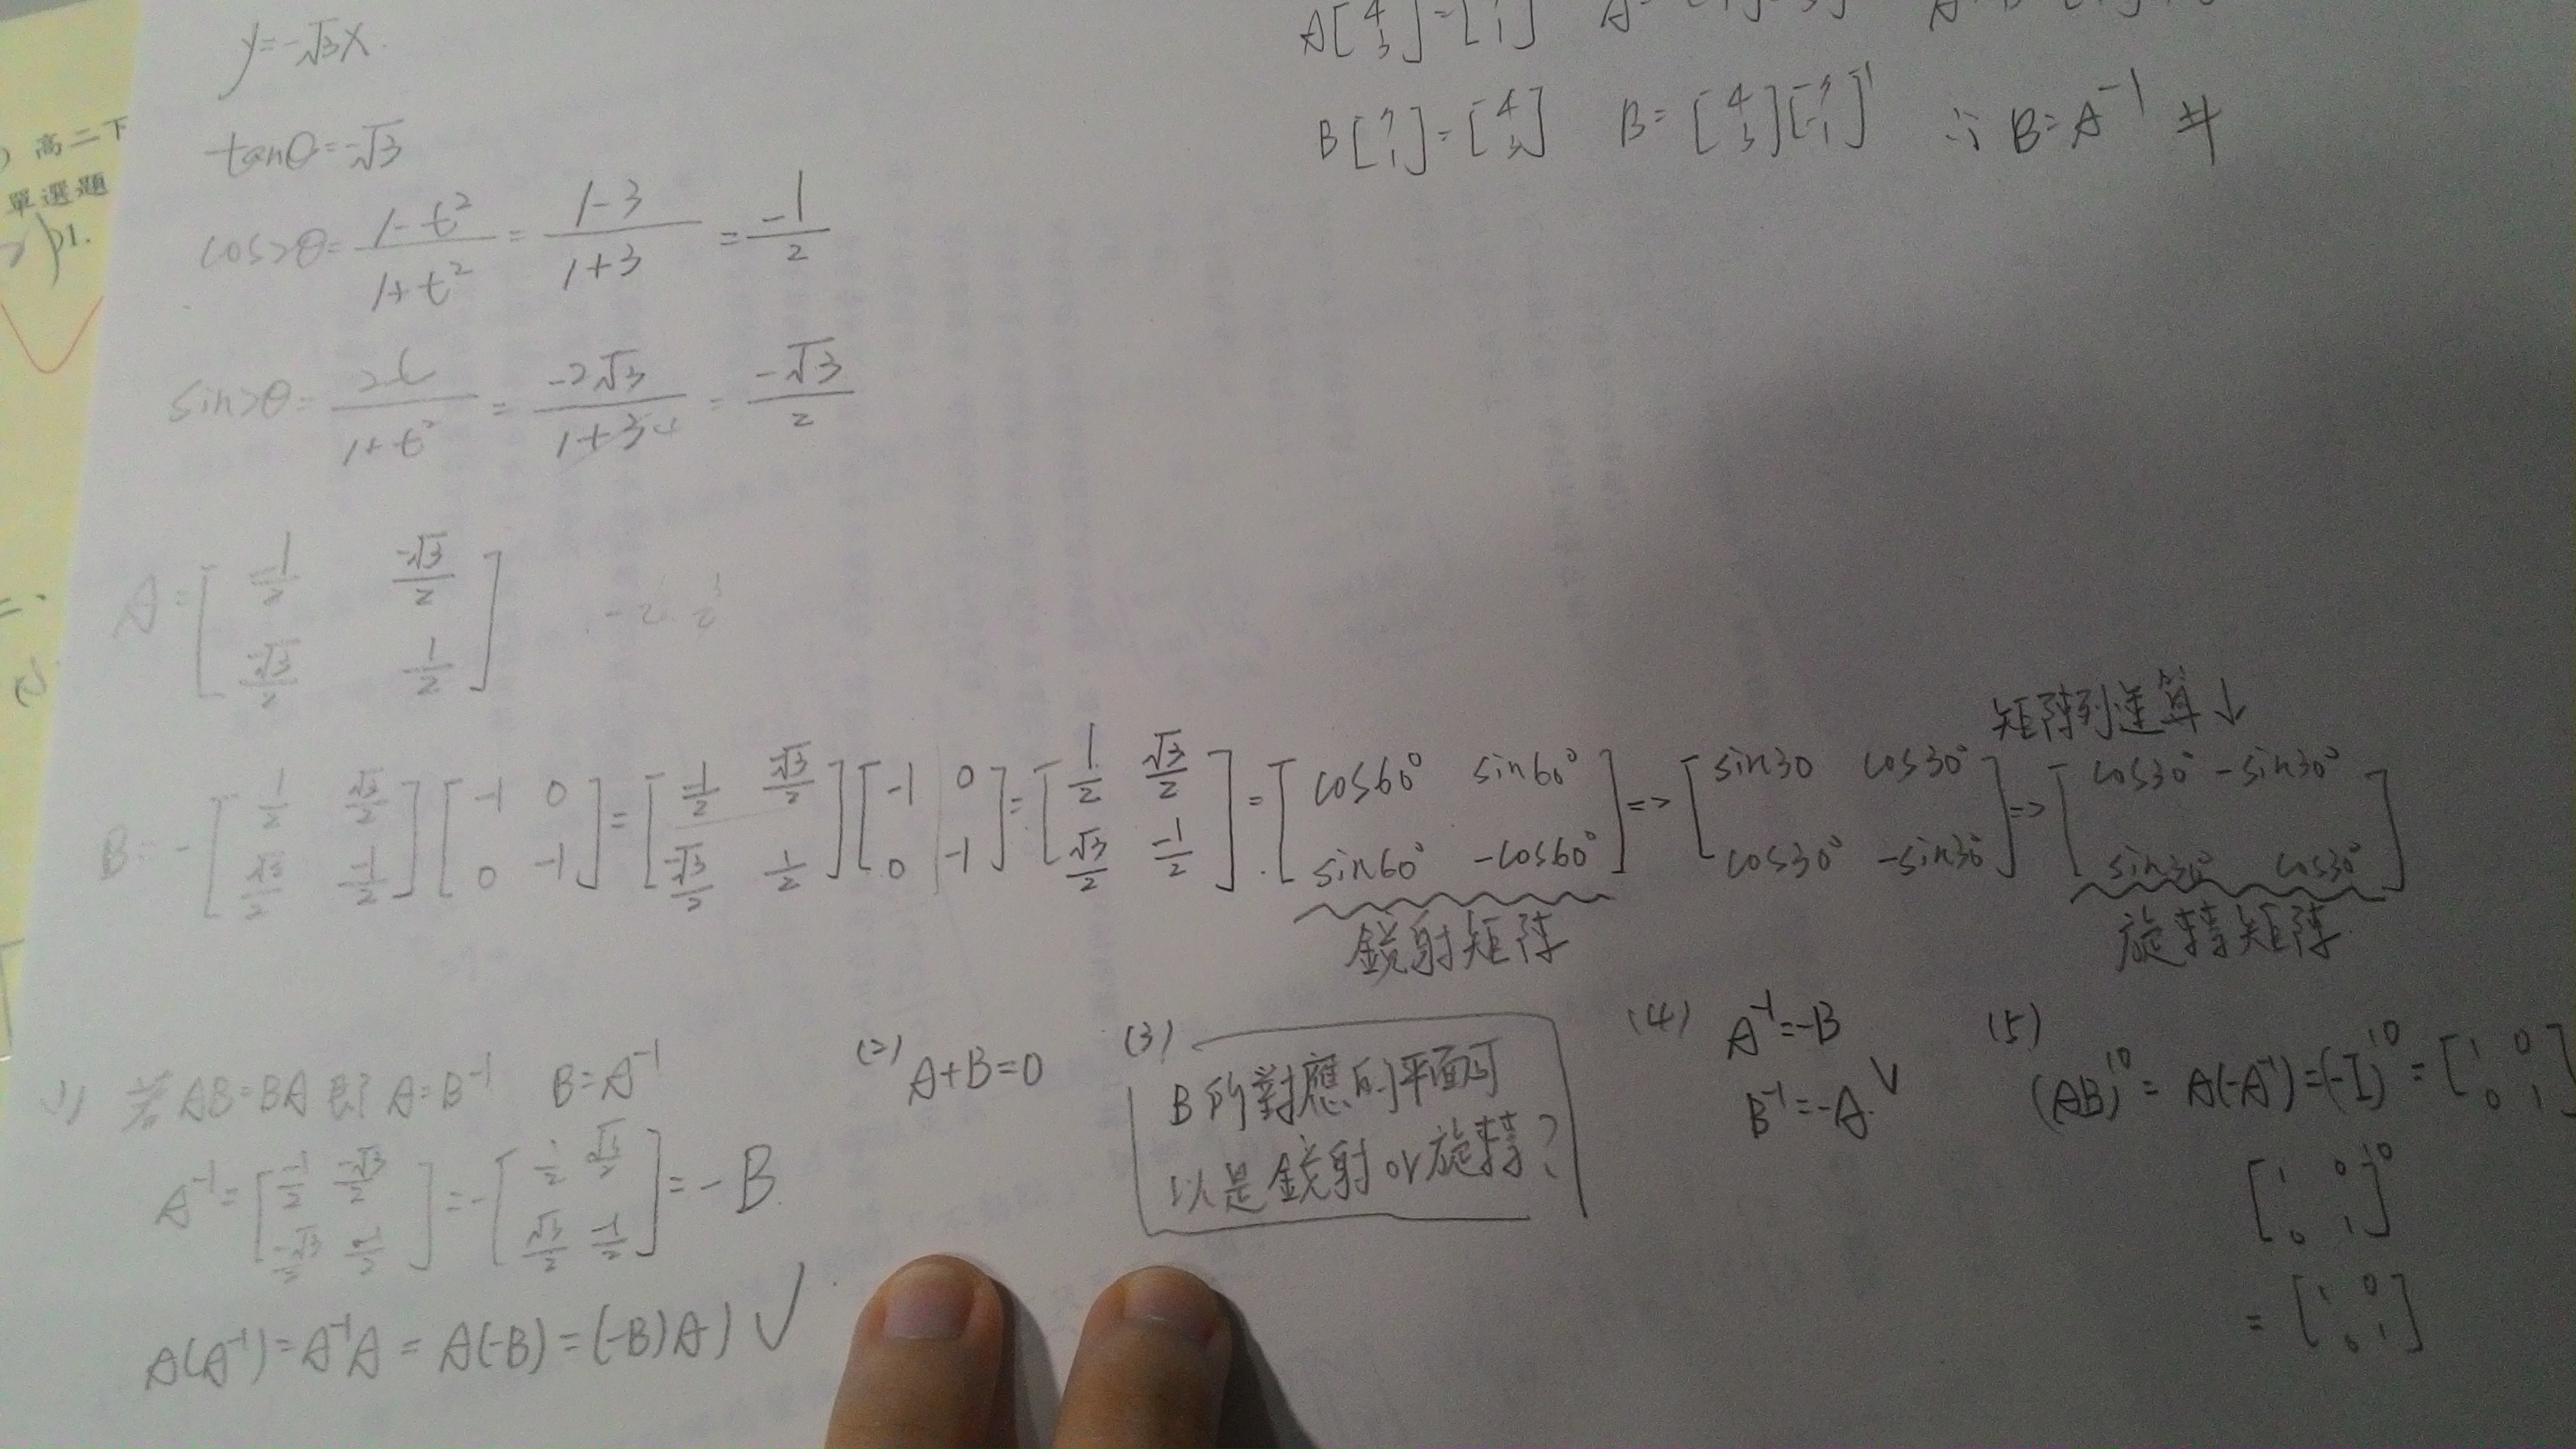 高二下
單選題
1.
y=-√3x.
tanθ=-√3
cos2θ= (1-t²)/(1+t²) = (1-3)/(1+3) = -1/2
sin2θ= 2t/(1+t²) = -2√3/(1+3) = -√3/2
B[7 1]=[4 3] B=[4 3][7 1]⁻¹ ∴ B=A⁻¹ #
A=[-1/2 -√3/2; -√3/2 1/2]
矩陣列運算↓
B=-[1/2 √3/2; √3/2 -1/2][-1 0; 0 -1]=[-1/2 -√3/2; -√3/2 1/2][-1 0; 0 -1]=[1/2 √3/2; √3/2 -1/2]=[cos60° sin60°; sin60° -cos60°]=>[sin30 cos30°; cos30° -sin30°]=>[cos30° -sin30°; sin30° cos30°]
鏡射矩陣
旋轉矩陣
(1) 若AB=BA 則 A=B⁻¹ B=A⁻¹
A⁻¹=[-1/2 -√3/2; -√3/2 1/2]=-[1/2 √3/2; √3/2 -1/2]=-B
A(A⁻¹)=A⁻¹A=A(-B)=(-B)A) ✓
(2) A+B=0
(3)
B的對應的平面可
以是鏡射or旋轉?
(4) A⁻¹=-B
B⁻¹=-A. ✓
(5)
(AB)¹⁰= A(-A⁻¹)=(-I)¹⁰=[1 0; 0 1]
[1 0; 0 1]¹⁰
=[1 0; 0 1]